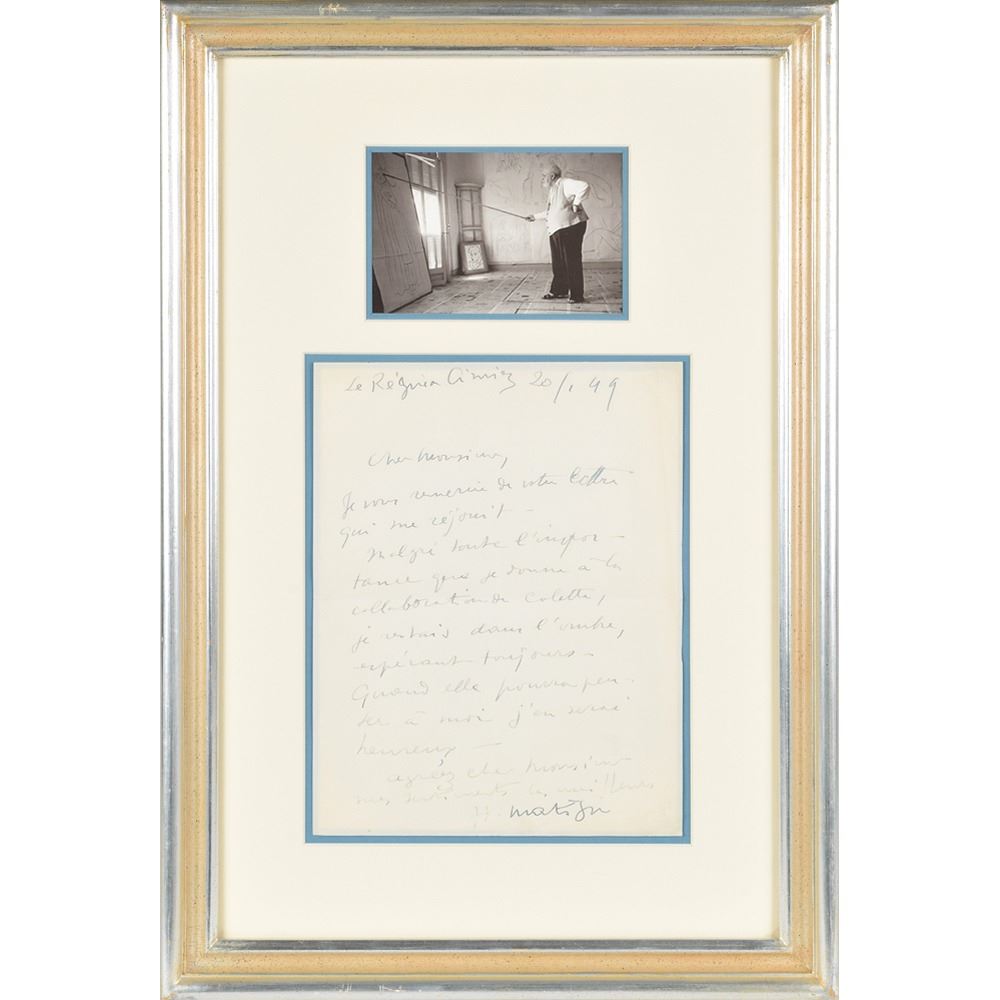 Le Régina Cimiez 20/1 49
Cher Monsieur,
Je vous remercie de votre lettre
qui me réjouit –
Malgré toute l'impor–
tance que je donne à la
collaboration de Colette,
je restais dans l'ombre,
espérant toujours –
Quand elle pourra pen–
ser à moi j'en serai
heureux –
agréez cher Monsieur
mes sentiments les meilleurs
H. Matisse